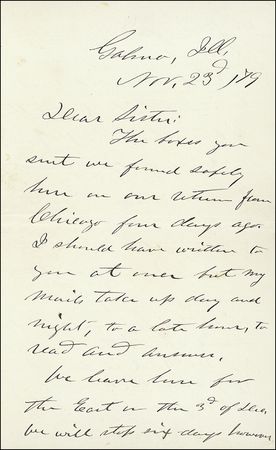 Galena, Ill,
Nov. 23d 179
Dear Sister:
The boxes you
sent we found safely
here on our return from
Chicago four days ago.
I should have written to
you at once but my
mails take up day and
night, to a late hour, to
read and answer.
We leave here for
the East on the 3d of Dec,
We will stop six days however